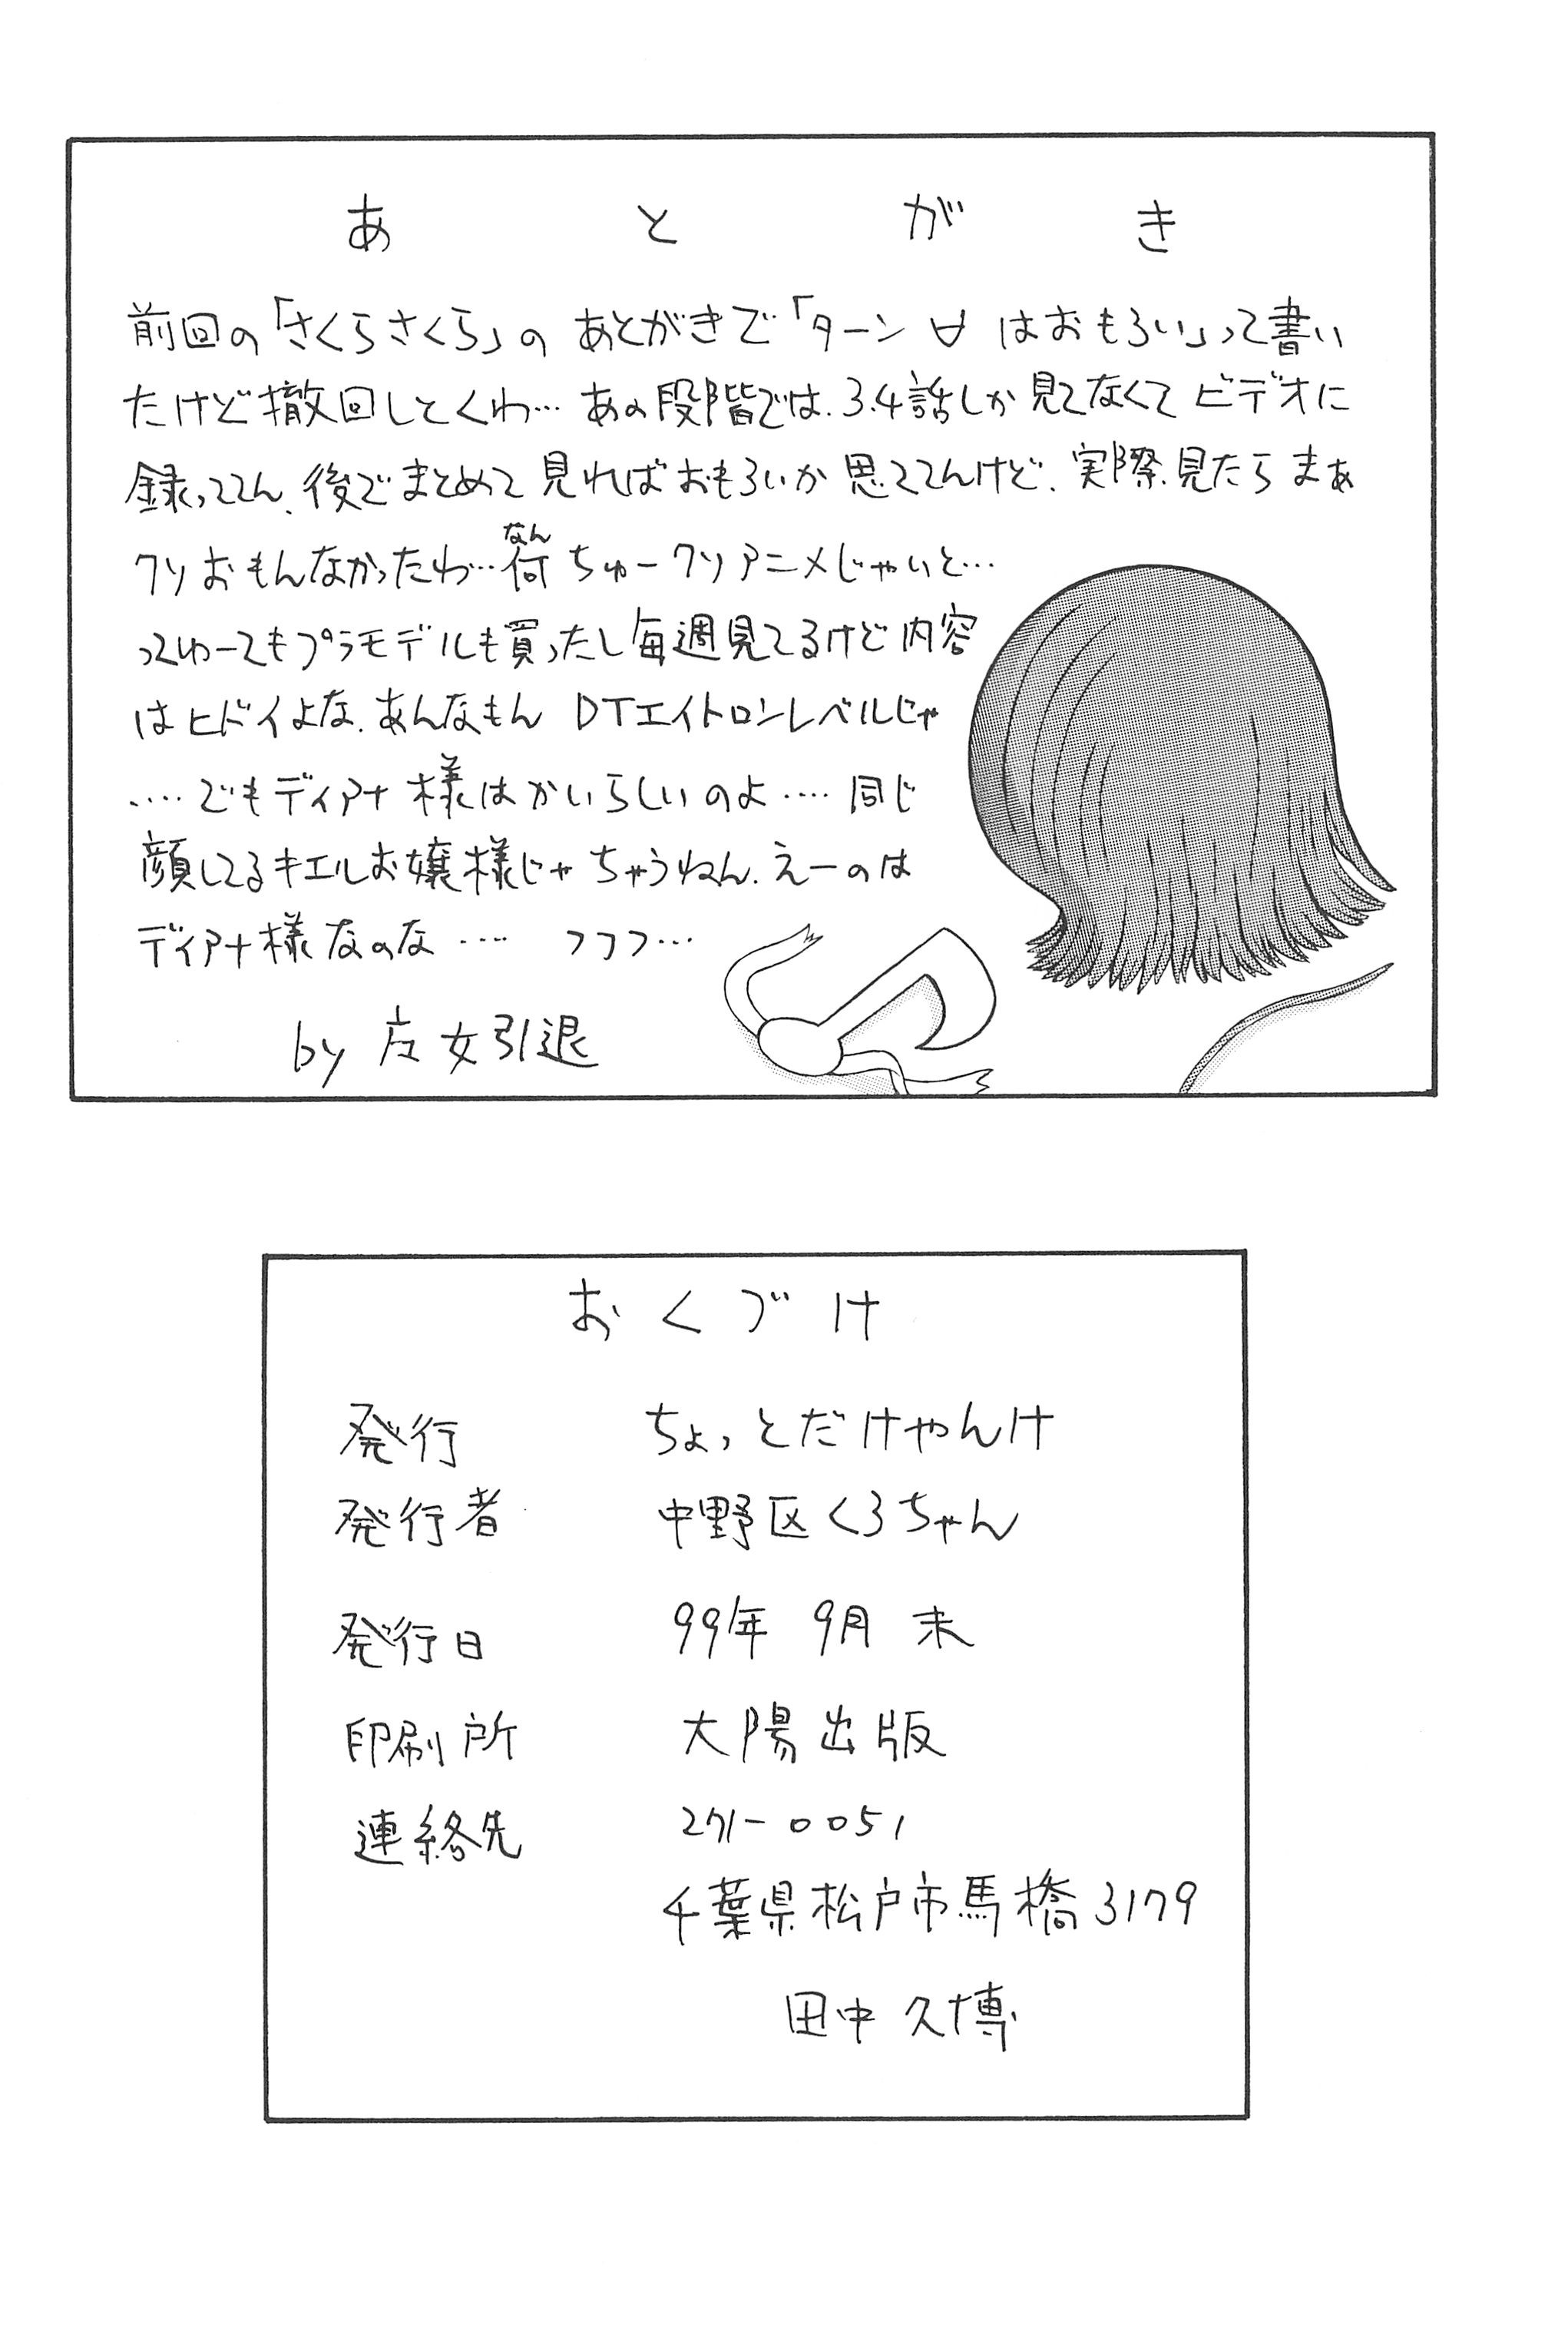 あとがき
前回の「さくらさくら」の あとがきで「ターン∀はおもろい」って書い
たけど撤回しとくわ… あの段階では、3.4話しか見てなくて ビデオに
録っててん、後でまとめて見ればおもろいか思ててんけど、実際見たらまぁ
クソおもんなかったわ…何ちゅークソアニメじゃいと…
なん
ってゆーてもプラモデルも買ったし毎週見てるけど内容
はヒドイよな、あんなもん DTエイトロンレベルじゃ
‥‥でもディアナ様はかいらしいのよ‥‥同じ
顔してるキエルお嬢様じゃちゃうねん、えーのは
ディアナ様なのな‥‥ フフフ…
by 女引退
おくづけ
発行 ちょっとだけやんけ
発行者 中野区くろちゃん
発行日 99年 9月 末
印刷所 大陽出版
連絡先 271-0051
千葉県松戸市馬橋3179
田中久博